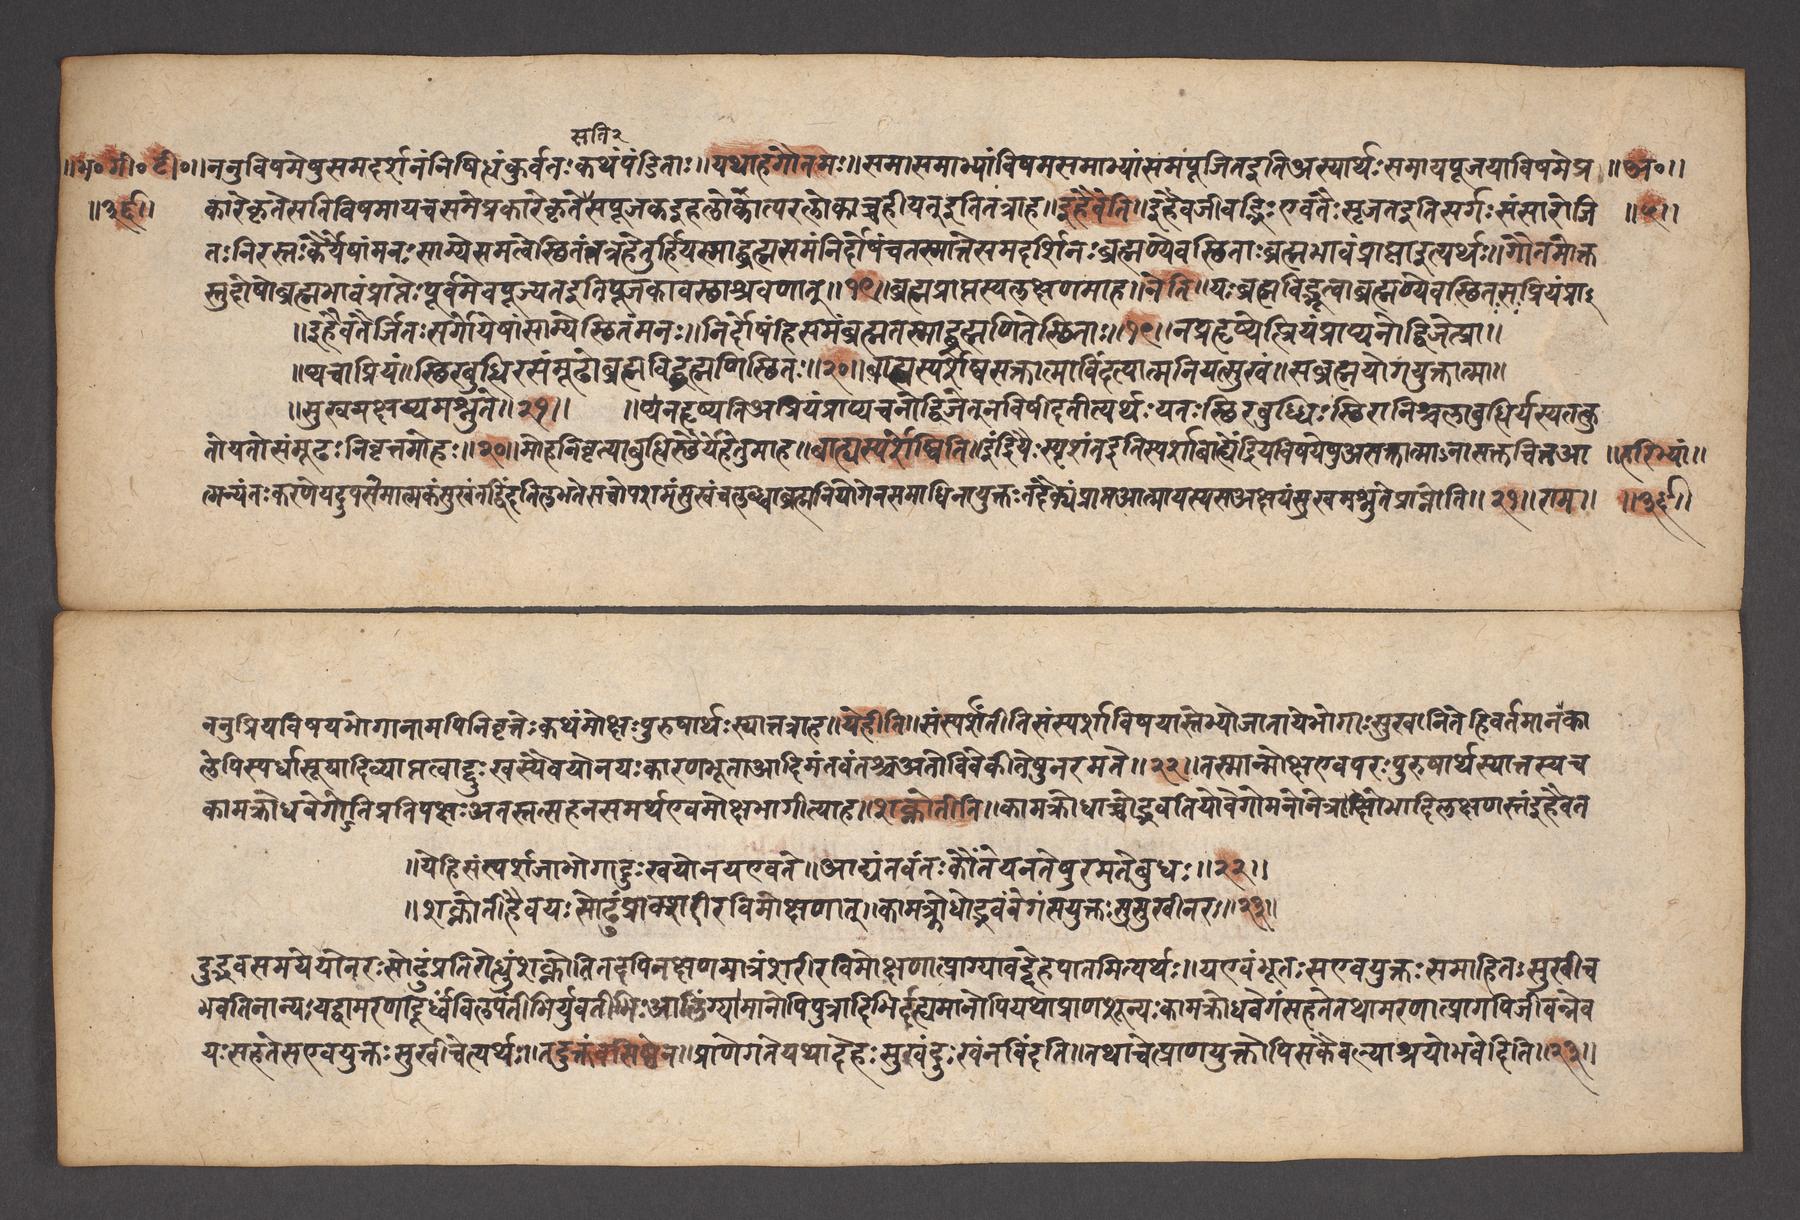 संति२
॥भ॰गी॰टी॰॥ननुविषमेषुसमदर्शनंनिषिद्धंकुर्वतःकथंपंडिताः॥यथाहगौतमः॥समासमाभ्यांविषमसमाभ्यांसमंपूजितइतिअस्यार्थःसमायपूजयाविषमेप्र ॥अ॰॥
॥३६॥ कारेकृतेसतिविषमायचसमेप्रकारेकृतेसपूजकइहलोकात्परलोकाच्चहीयतइतितत्राह॥इहैवेति॥इहैवजीवद्भिःएवतैःसृजतइतिसर्गःसंसारोजि ॥५॥
तःनिरस्तःकैर्येषांमनःसाम्येसमत्वेस्थितंतत्रहेतुर्हियस्माद्ब्रह्मसमंनिर्दोषंचतस्मात्तेसमदर्शिनःब्रह्मण्येवस्थिताःब्रह्मभावंप्राप्ताइत्यर्थः॥गौतमोक्त
स्तुदोषोब्रह्मभावंप्राप्तेःपूर्वमेवपूज्यतइतिपूजकावस्थाश्रवणात्॥१९॥ब्रह्मप्राप्तस्यलक्षणमाह॥नेति॥यःब्रह्मविद्भूत्वाब्रह्मण्येवस्थितःसप्रियंप्रा
॥इहैवतैर्जितःसर्गोयेषांसाम्येस्थितंमनः॥निर्दोषंहिसमंब्रह्मतस्माद्ब्रह्मणितेस्थिताः॥१९॥नप्रहृष्येत्प्रियंप्राप्यनोद्विजेत्प्रा॥
॥प्यचाप्रियं॥स्थिरबुद्धिरसंमूढोब्रह्मविद्ब्रह्मणिस्थितः॥२०॥बाह्यस्पर्शेष्वसक्तात्माविंदत्यात्मनियत्सुखं॥सब्रह्मयोगयुक्तात्मा॥
॥सुखमक्षय्यमश्नुते॥२१॥ ॥प्यनहृष्यतिअप्रियंप्राप्यचनोद्विजेतनविषीदतीत्यर्थःयतःस्थिरबुद्धिःस्थिरानिश्चलाबुद्धिर्यस्यतत्कु
तोयतोसंमूढःनिवृत्तमोहः॥२०॥मोहनिवृत्याबुद्धिस्थैर्येहेतुमाह॥बाह्यस्पर्शेष्विति॥इंद्रियैःस्पृशंतइतिस्पर्शाबाह्येंद्रियविषयेषुअसक्तात्माऽनासक्तचित्तआ ॥हरिभ्यां॥
त्मन्यंतःकरणेयदुपशमात्मकंसुखंतद्विंदतिलभतेसचोपशमंसुखंचलब्ध्वाब्रह्मनियोगेनसमाधिनायुक्तःतदैक्यंप्राप्तआत्मायस्यसअक्षयंसुखमश्नुतेप्राप्नोति॥२१॥राम॥ ॥३६॥
ननुप्रियविषयभोगानामपिनिवृत्तेःकथंमोक्षःपुरुषार्थःस्यात्तत्राह॥येहीति॥संस्पर्शेतीतिसंस्पर्शाविषयास्तेभ्योजातायेभोगाःसुखानितेहिवर्तमानका
लेपिस्पर्धासूयादिव्याप्तत्वाद्दुःखस्यैवयोनयःकारणभूताआदिमंतवंतश्चअतोविवेकीतेषुनरमते॥२२॥तस्मान्मोक्षएवपरःपुरुषार्थस्यात्तस्यच
कामक्रोधवेगोतिप्रतिपक्षःअतस्तत्सहनसमर्थएवमोक्षभागीत्याह॥शक्नोतीति॥कामक्रोधाच्चोद्भवतियोवेगोमनोनेत्रक्षोभादिलक्षणस्तंइहैवत
॥येहिसंस्पर्शजाभोगादुःखयोनयएवते॥आद्यंतवंतःकौंतेयनतेषुरमतेबुधः॥२२॥
॥शक्नोतीहैवयःसोढुंप्राक्शरीरविमोक्षणात्॥कामक्रोधोद्भवंवेगंसयुक्तःसुसुखीनरः॥२३॥
दुद्भवसमयेयोनरःसोढुंप्रतिरोद्धुंशक्नोतितदपिनक्षणमात्रंशरीरविमोक्षणात्प्राग्यावद्देहपातमित्यर्थः॥यएवंभूतःसएवयुक्तःसमाहितःसुखीच
भवतिनान्यःयद्वामरणादूर्ध्वंविलपंतीभिर्युवतीभिःआलिंग्यमानोपिपुत्रादिभिर्दह्यमानोपियथाप्राणशून्यःकामक्रोधवेगंसहतेतथामरणात्प्रागपिजीवन्नेव
यःसहतेसएवयुक्तःसुखीचेत्यर्थः॥तदुक्तंवसिष्ठेन॥प्राणेगतेयथादेहःसुखंदुःखंनविंदति॥तथाचेत्प्राणयुक्तोपिसकैवल्याश्रयोभवेदिति॥२३॥